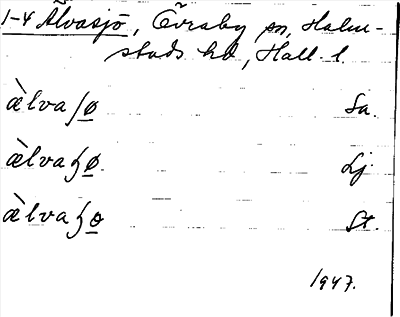 1-4 Älvasjö, Övraby sn, Halm-
stads hd, Hall. l.
æ̀lvaʃø̲ Sa.
æ̀lvaɧø̲ Lj.
æ̀lvaɧo̲ St.
1947.